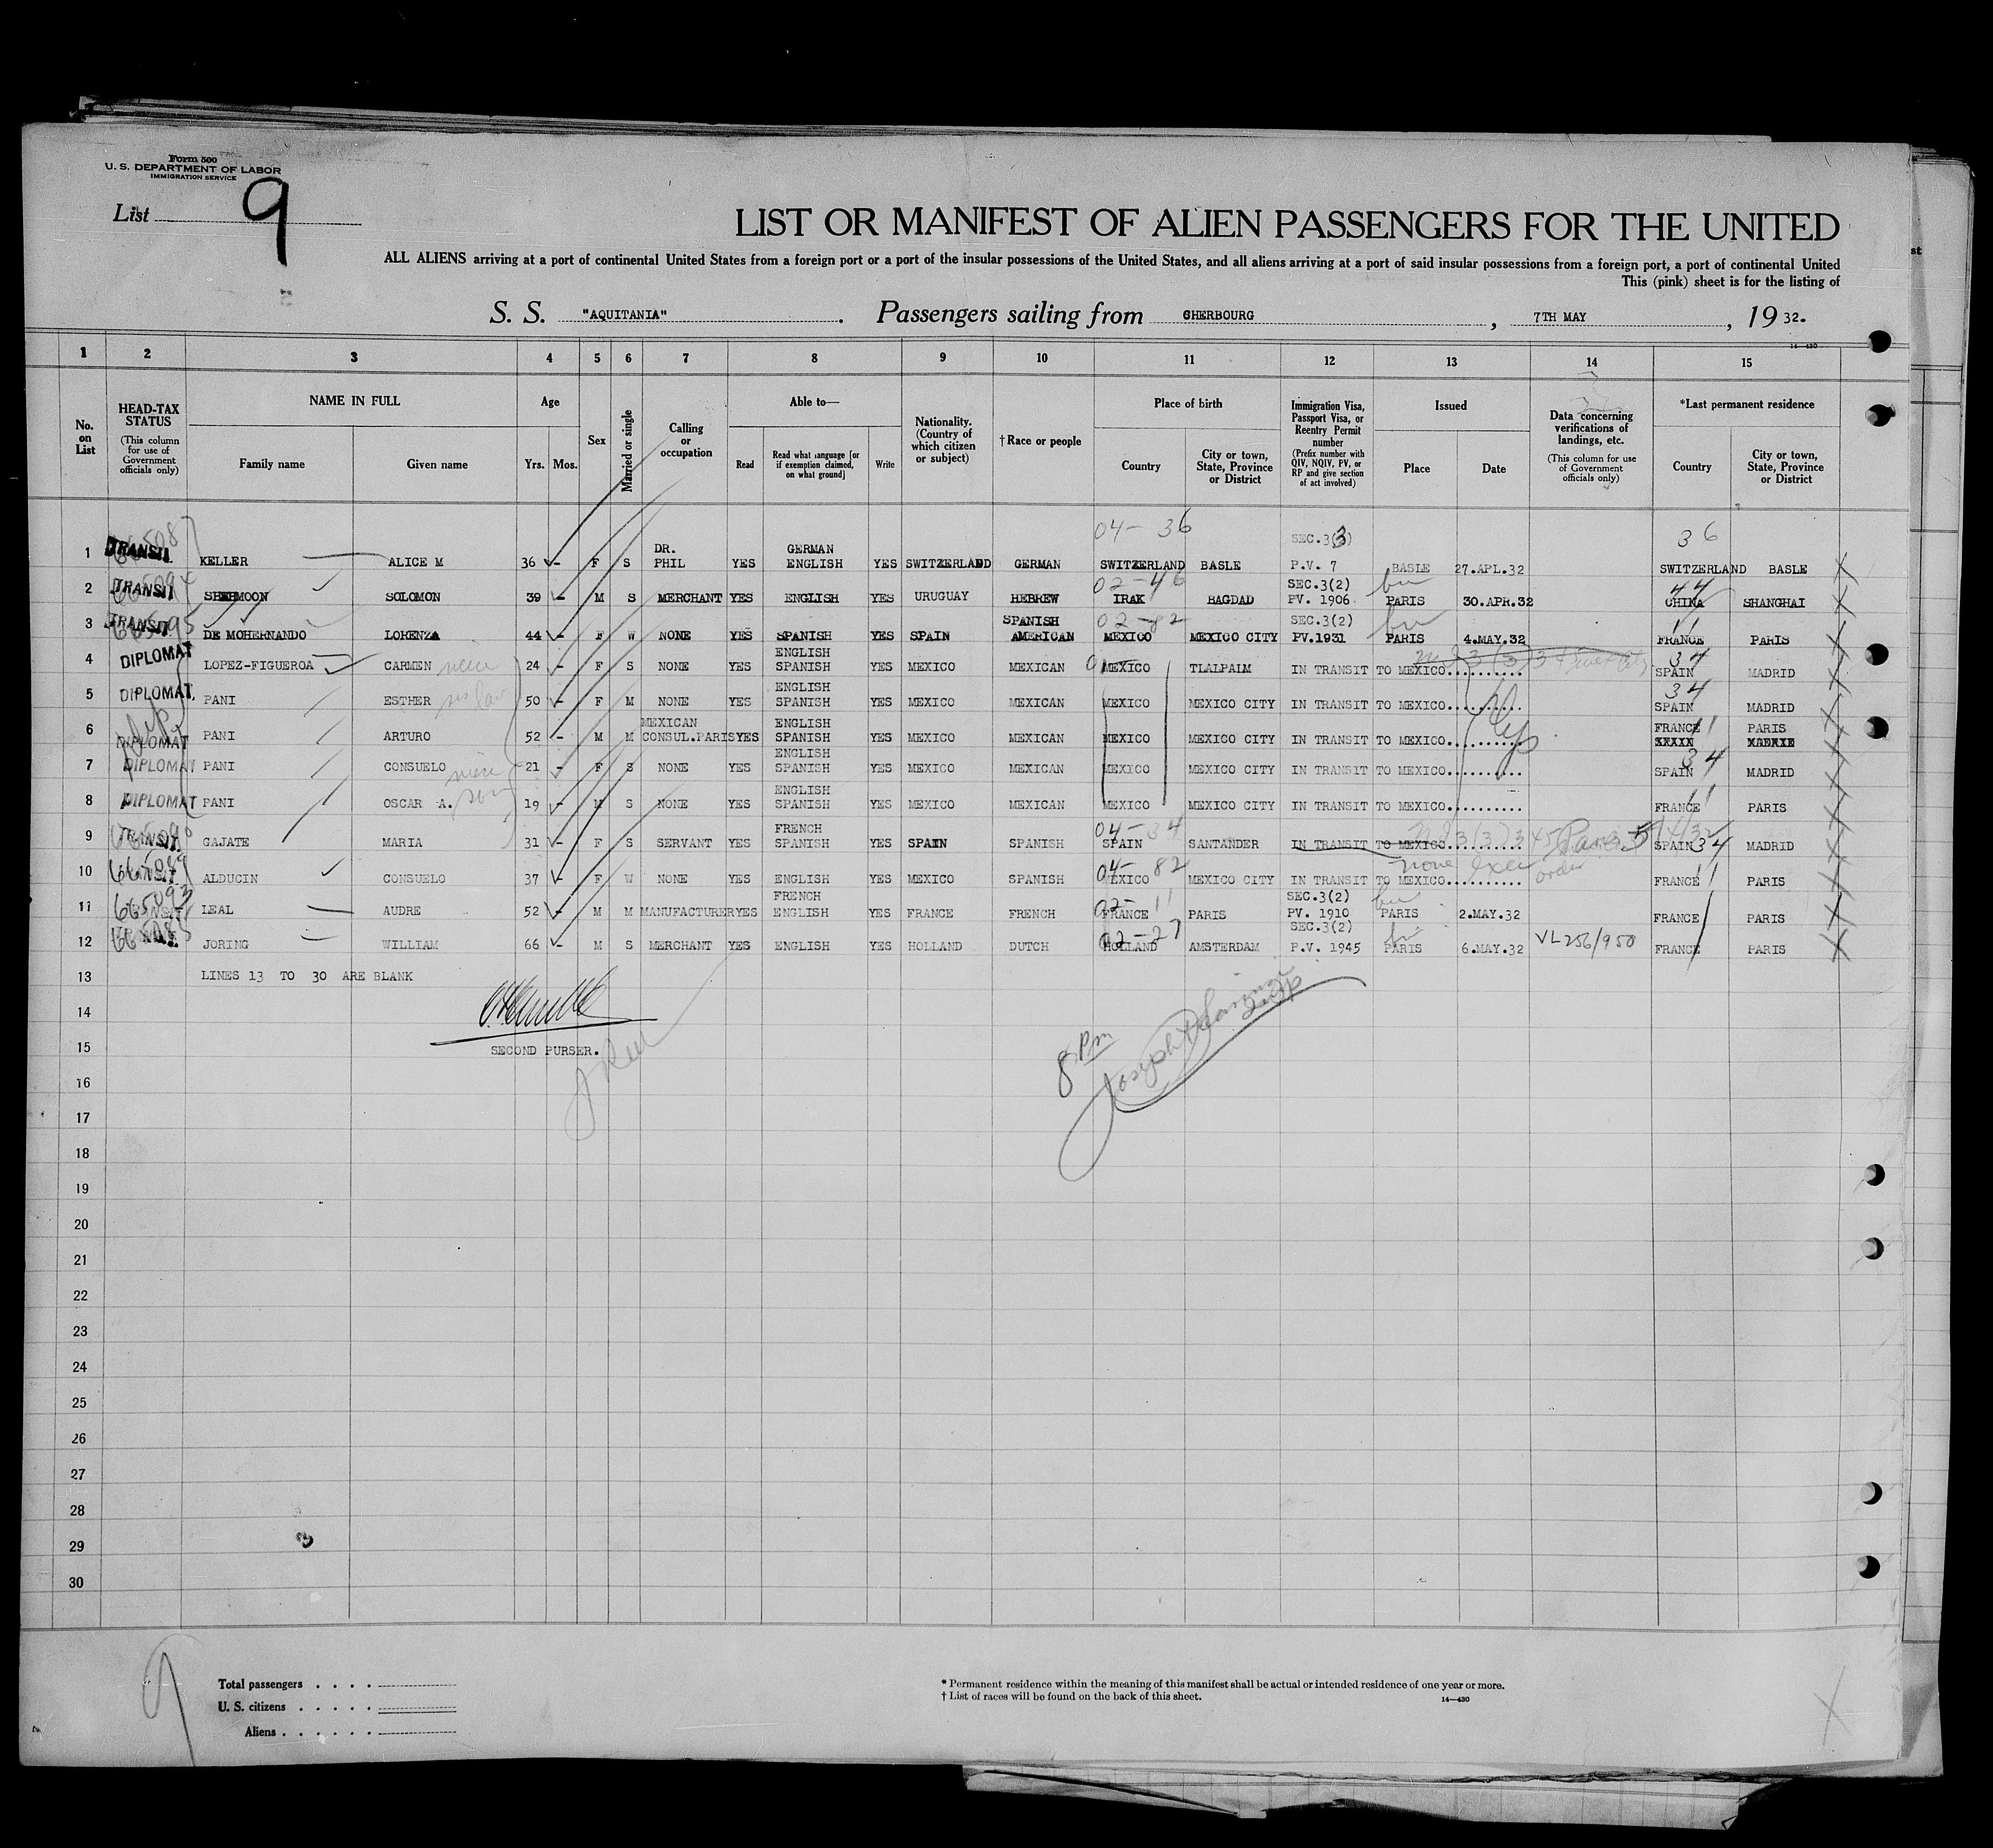 Form 500
U. S. DEPARTMENT OF LABOR
IMMIGRATION SERVICE
List 9
LIST OR MANIFEST OF ALIEN PASSENGERS FOR THE UNITED
ALL ALIENS arriving at a port of continental United States from a foreign port or a port of the insular possessions of the United States, and all aliens arriving at a port of said insular possessions from a foreign port, a port of continental United
This (pink) sheet is for the listing of
S. S. "AQUITANIA". Passengers sailing from CHERBOURG, 7TH MAY, 19 32.
14-430
1 2 3 4 5 6 7 8 9 10 11 12 13 14 15
No. on List
HEAD-TAX STATUS (This column for use of Government officials only)
NAME IN FULL
Family name Given name
Age
Yrs. Mos.
Sex
Married or single
Calling or occupation
Able to—
Read Read what language [or if exemption claimed, on what ground] Write
Nationality. (Country of which citizen or subject)
†Race or people
Place of birth
Country City or town, State, Province or District
Immigration Visa, Passport Visa, or Reentry Permit number (Prefix number with QIV, NQIV, PV, or RP and give section of act involved)
Issued
Place Date
Data concerning verifications of landings, etc. (This column for use of Government officials only)
*Last permanent residence
Country City or town, State, Province or District
04- 36 SEC.3(3) 36
1 TRANSIT KELLER ALICE M 36 - F S DR. PHIL YES GERMAN ENGLISH YES SWITZERLAND GERMAN SWITZERLAND BASLE P.V. 7 BASLE 27.APL.32 SWITZERLAND BASLE
02-46 44
2 TRANSIT SHEHMOON SOLOMON 39 - M S MERCHANT YES ENGLISH YES URUGUAY HEBREW IRAK BAGDAD SEC.3(2) PV. 1906 PARIS 30.APR.32 CHINA SHANGHAI
02-82 11
3 TRANSIT DE MOHERNANDO LORENZA 44 - F W NONE YES SPANISH YES SPAIN SPANISH AMERICAN MEXICO MEXICO CITY SEC.3(2) PV.1931 PARIS 4.MAY.32 FRANCE PARIS
4 DIPLOMAT LOPEZ-FIGUEROA CARMEN niece 24 - F S NONE YES ENGLISH SPANISH YES MEXICO MEXICAN MEXICO TLALPALM IN TRANSIT TO MEXICO.......... 34 SPAIN MADRID
5 DIPLOMAT PANI ESTHER 50 - F M NONE YES ENGLISH SPANISH YES MEXICO MEXICAN MEXICO MEXICO CITY IN TRANSIT TO MEXICO.......... 34 SPAIN MADRID
6 DIPLOMAT PANI ARTURO 52 - M M MEXICAN CONSUL.PARIS YES ENGLISH SPANISH YES MEXICO MEXICAN MEXICO MEXICO CITY IN TRANSIT TO MEXICO.......... FRANCE 11 PARIS
7 DIPLOMAT PANI CONSUELO niece 21 - F S NONE YES ENGLISH SPANISH YES MEXICO MEXICAN MEXICO MEXICO CITY IN TRANSIT TO MEXICO.......... 34 SPAIN MADRID
8 DIPLOMAT PANI OSCAR A. son 19 - M S NONE YES ENGLISH SPANISH YES MEXICO MEXICAN MEXICO MEXICO CITY IN TRANSIT TO MEXICO.......... 11 FRANCE PARIS
04-34
9 TRANSIT GAJATE MARIA 31 - F S SERVANT YES FRENCH SPANISH YES SPAIN SPANISH SPAIN SANTANDER IN TRANSIT TO MEXICO.......... SPAIN 34 MADRID
04-82 none exec order
10 665089 ALDUCIN CONSUELO 37 - F W NONE YES ENGLISH YES MEXICO SPANISH MEXICO MEXICO CITY IN TRANSIT TO MEXICO.......... FRANCE 11 PARIS
02-11
11 665093 LEAL AUDRE 52 - M M MANUFACTURER YES FRENCH ENGLISH YES FRANCE FRENCH FRANCE PARIS SEC.3(2) PV. 1910 PARIS 2.MAY.32 FRANCE PARIS
02-27
12 JORING WILLIAM 66 - M S MERCHANT YES ENGLISH YES HOLLAND DUTCH HOLLAND AMSTERDAM SEC.3(2) P.V. 1945 PARIS 6.MAY.32 VL256/950 FRANCE PARIS
13 LINES 13 TO 30 ARE BLANK
14
15 SECOND PURSER.
8 Pm
16
17
18
19
20
21
22
23
24
25
26
27
28
29
30
9
Total passengers . . . .
U. S. citizens . . . . .
Aliens . . . . . .
* Permanent residence within the meaning of this manifest shall be actual or intended residence of one year or more.
† List of races will be found on the back of this sheet.
14-430